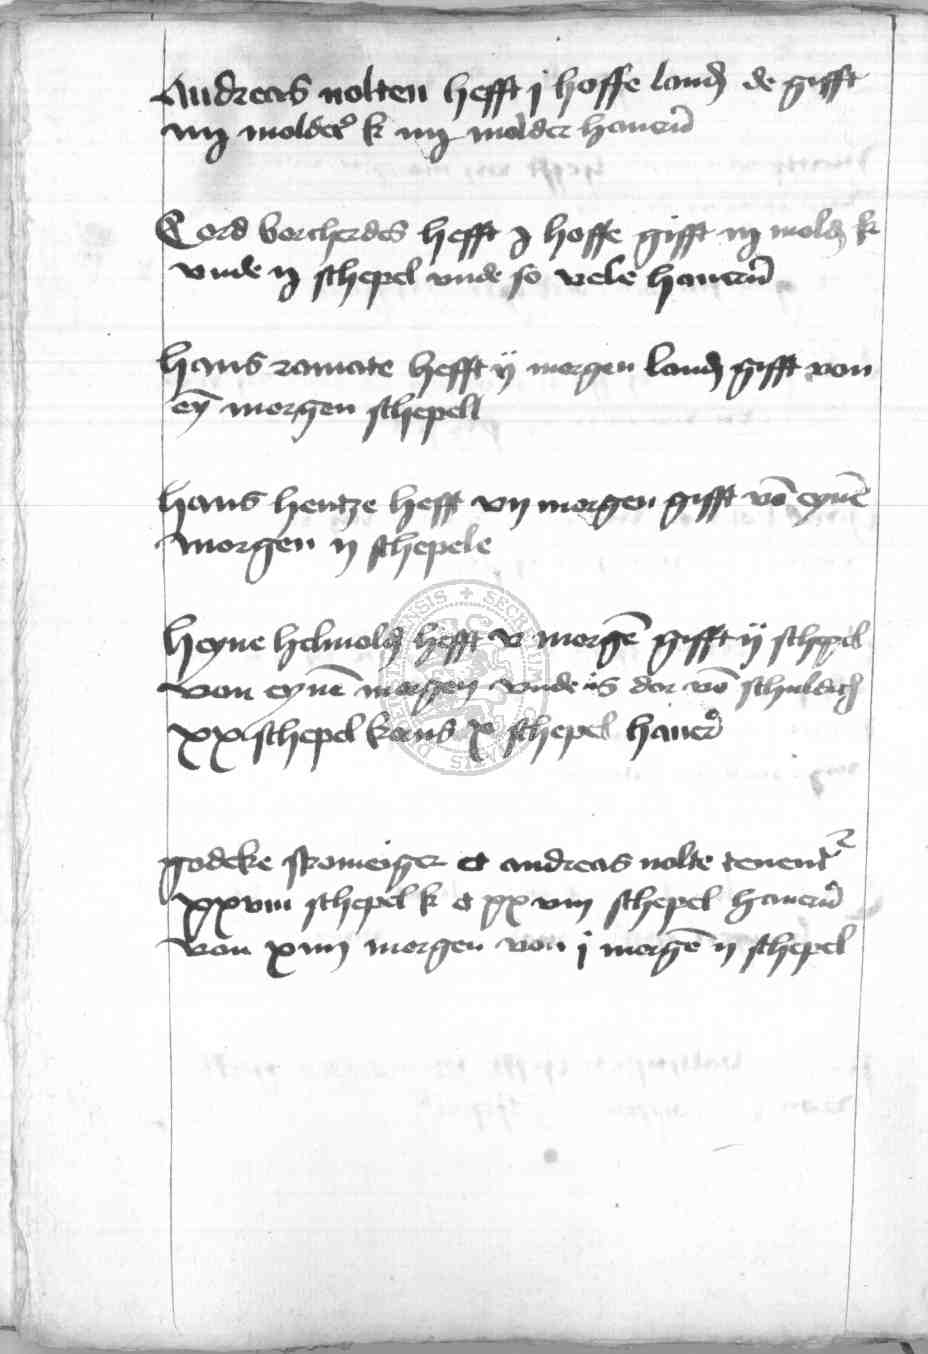 Andreas nolten hefft j hoffe land de gifft
iiij molder k iiij molder hauern
Cord borcherdes hefft j hoffe gifft iij mold k
vnde ij schepel vnde so vele hauern
hans ramate hefft ij morgen land gifft von
ey morgen schepell
hans hentze hefft vij morgen gifft vo eyne
morgen ij schepele
heyne helmold hefft v morge gifft ij schepel
von eyne morgen vnde is dar vo schuldich
xx schepel korns x schepel hauer
godeke et andreas nolte tenent
xxviii schepel k et xxviii schepel hauern
von xiiij morgen von j morge ij schepel